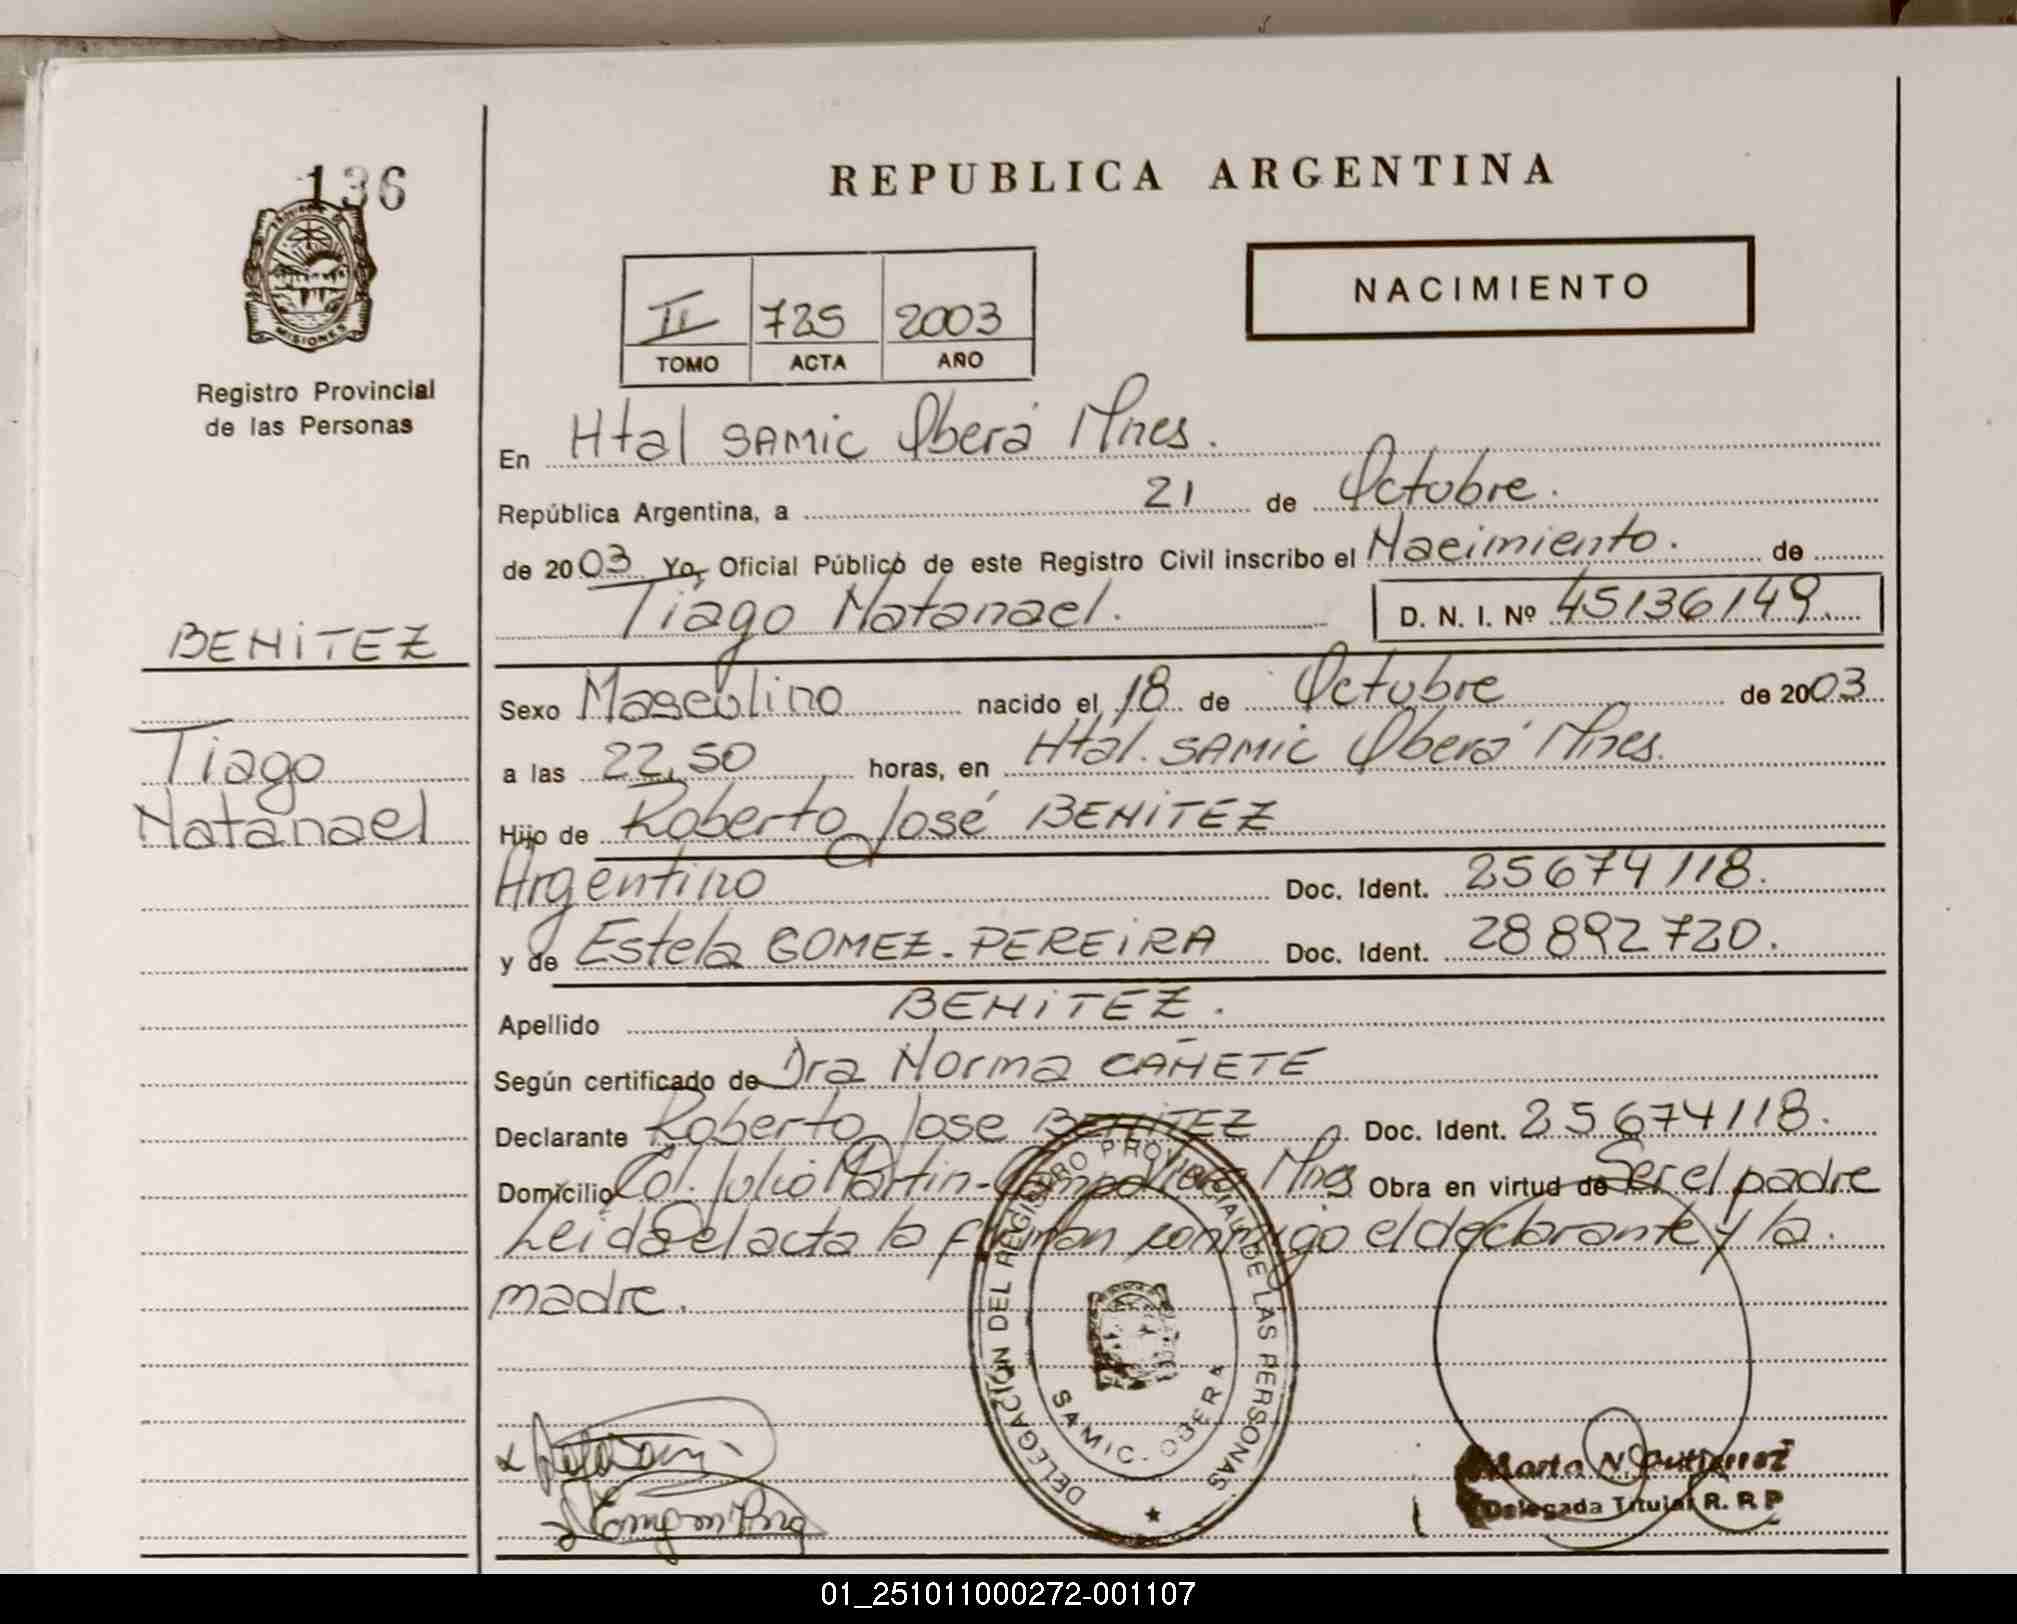 136
MISIONES
Registro Provincial
de las Personas
BENITEZ
Tiago
Natanael
REPUBLICA ARGENTINA
II 725 2003
TOMO ACTA AÑO
NACIMIENTO
En Htal SAMIC Oberá Mnes.
República Argentina, a 21 de Octubre.
de 2003 Yo, Oficial Público de este Registro Civil inscribo el Nacimiento. de
Tiago Natanael. D. N. I. Nº 45136149.
Sexo Masculino nacido el 18 de Octubre de 2003
a las 22,50 horas, en Htal. SAMIC Oberá Mnes.
Hijo de Roberto José BENITEZ
Argentino Doc. Ident. 25674118.
y de Estela GOMEZ-PEREIRA Doc. Ident. 28892720.
Apellido BENITEZ.
Según certificado de Dra Norma CAÑETE
Declarante Roberto Jose BENITEZ Doc. Ident. 25674118.
Domicilio Col. Julio Martin-Campo Viera Mnes Obra en virtud de Ser el padre
Leida el acta la firman conmigo el declarante y la
madre.
DELEGACIÓN DEL REGISTRO PROVINCIAL DE LAS PERSONAS
SAMIC. OBERA
Marta N Gutierrez
Delegada Titular R. R P
01_251011000272-001107